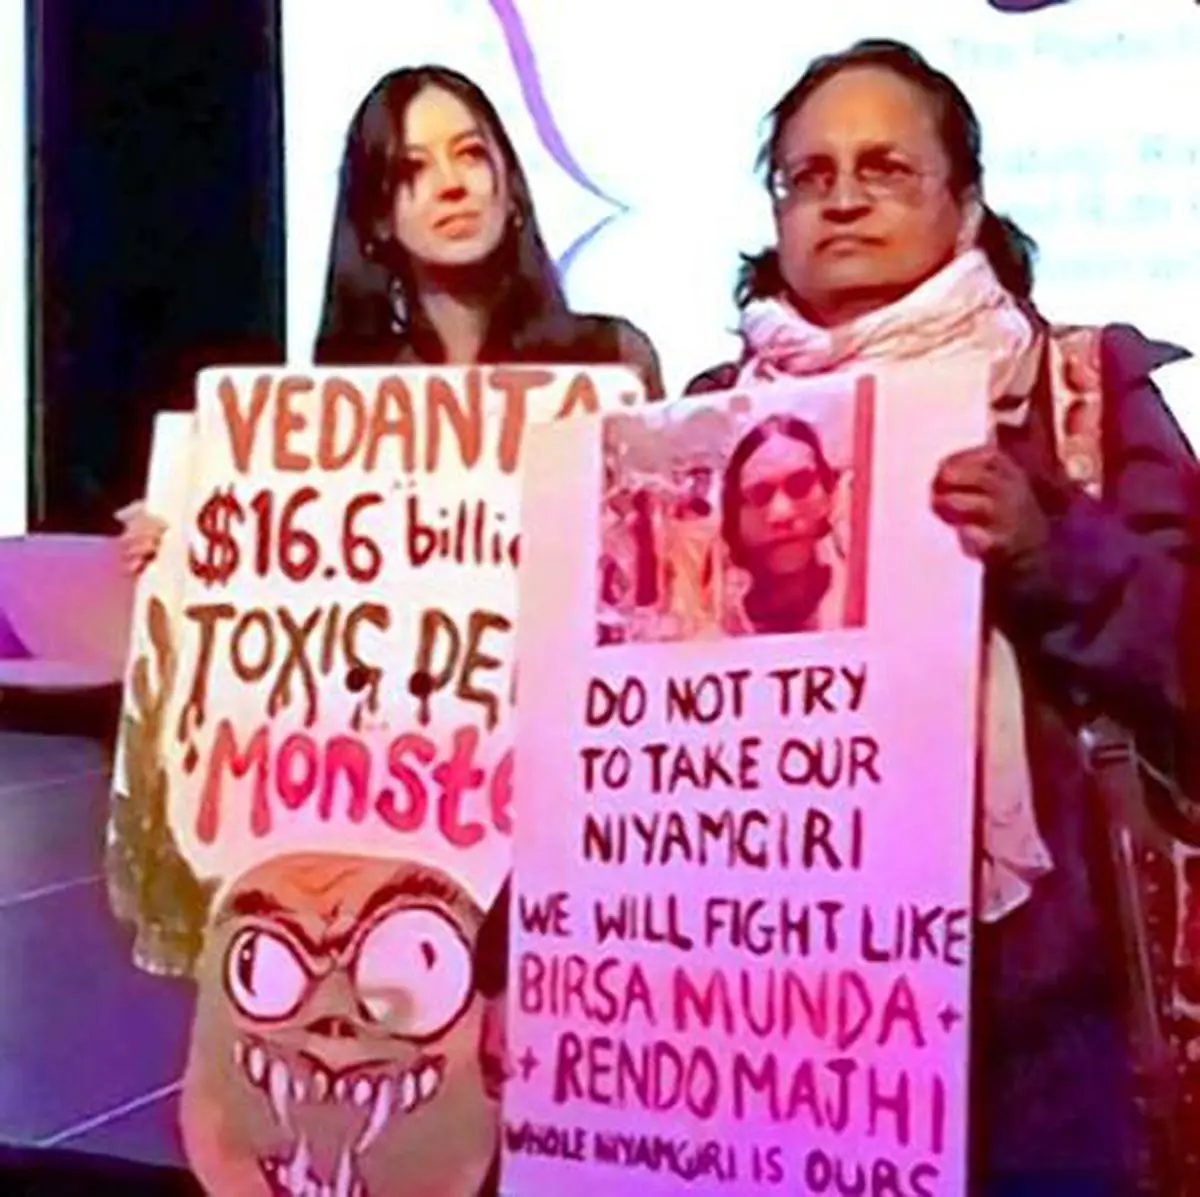 VEDANTA
$16.6 billi
TOXIC DE
Monste
DO NOT TRY
TO TAKE OUR
NIYAMGIRI
WE WILL FIGHT LIKE
BIRSA MUNDA +
+ RENDO MAJHI
WHOLE NIYAMGIRI IS OURS